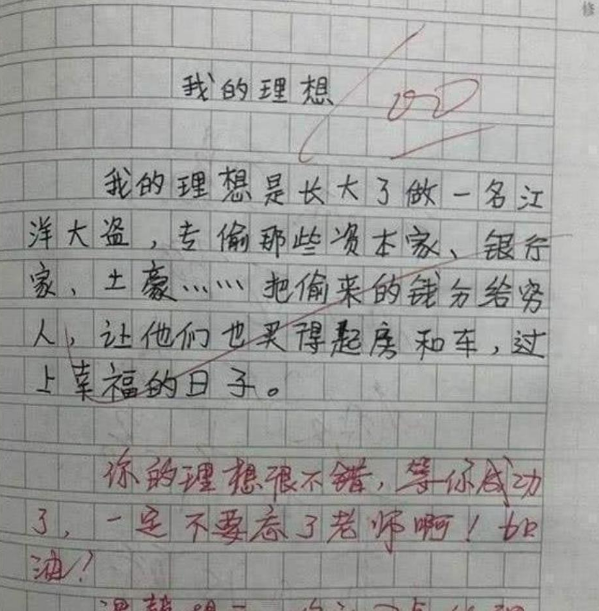 我的理想
我的理想是长大了做一名江
洋大盗，专偷那些资本家、银行
家、土豪……把偷来的钱分给穷
人，让他们也买得起房和车，过
上幸福的日子。
你的理想很不错，等你成功
了，一定不要忘了老师啊！加
油？
修